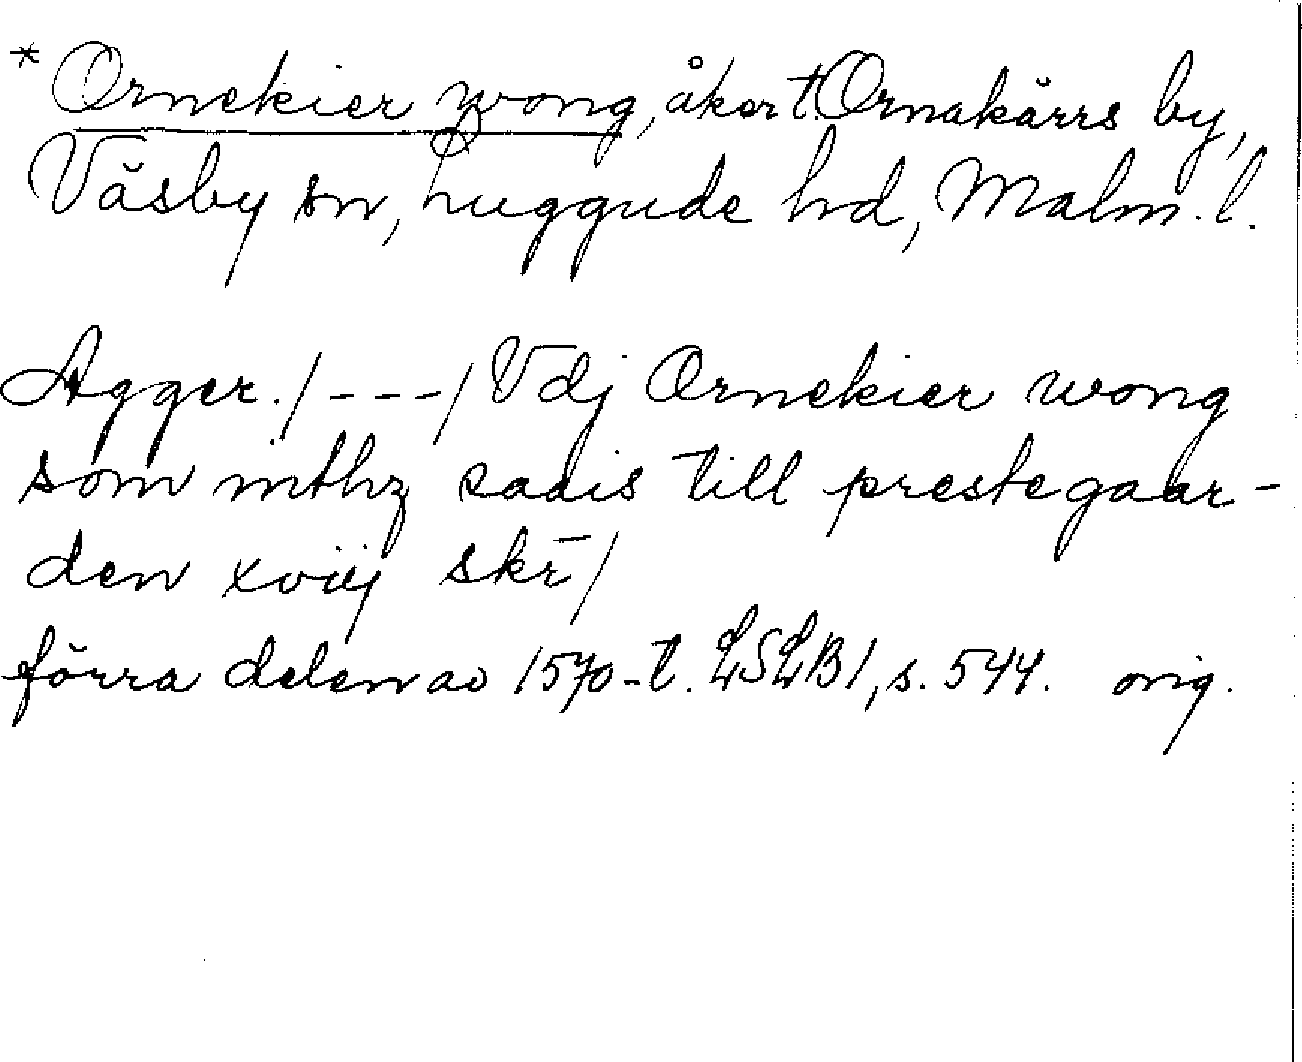 * Ornekier wong, åker t. Ornakärrs by,
Väsby sn, Luggude hd, Malm. l.
Agger. / - - - / Vdj Ornekier wong
som mthz saais till prestegaar-
den xviij skr̄ /
förra delen av 1570-t. LSLB1, s. 544. orig.